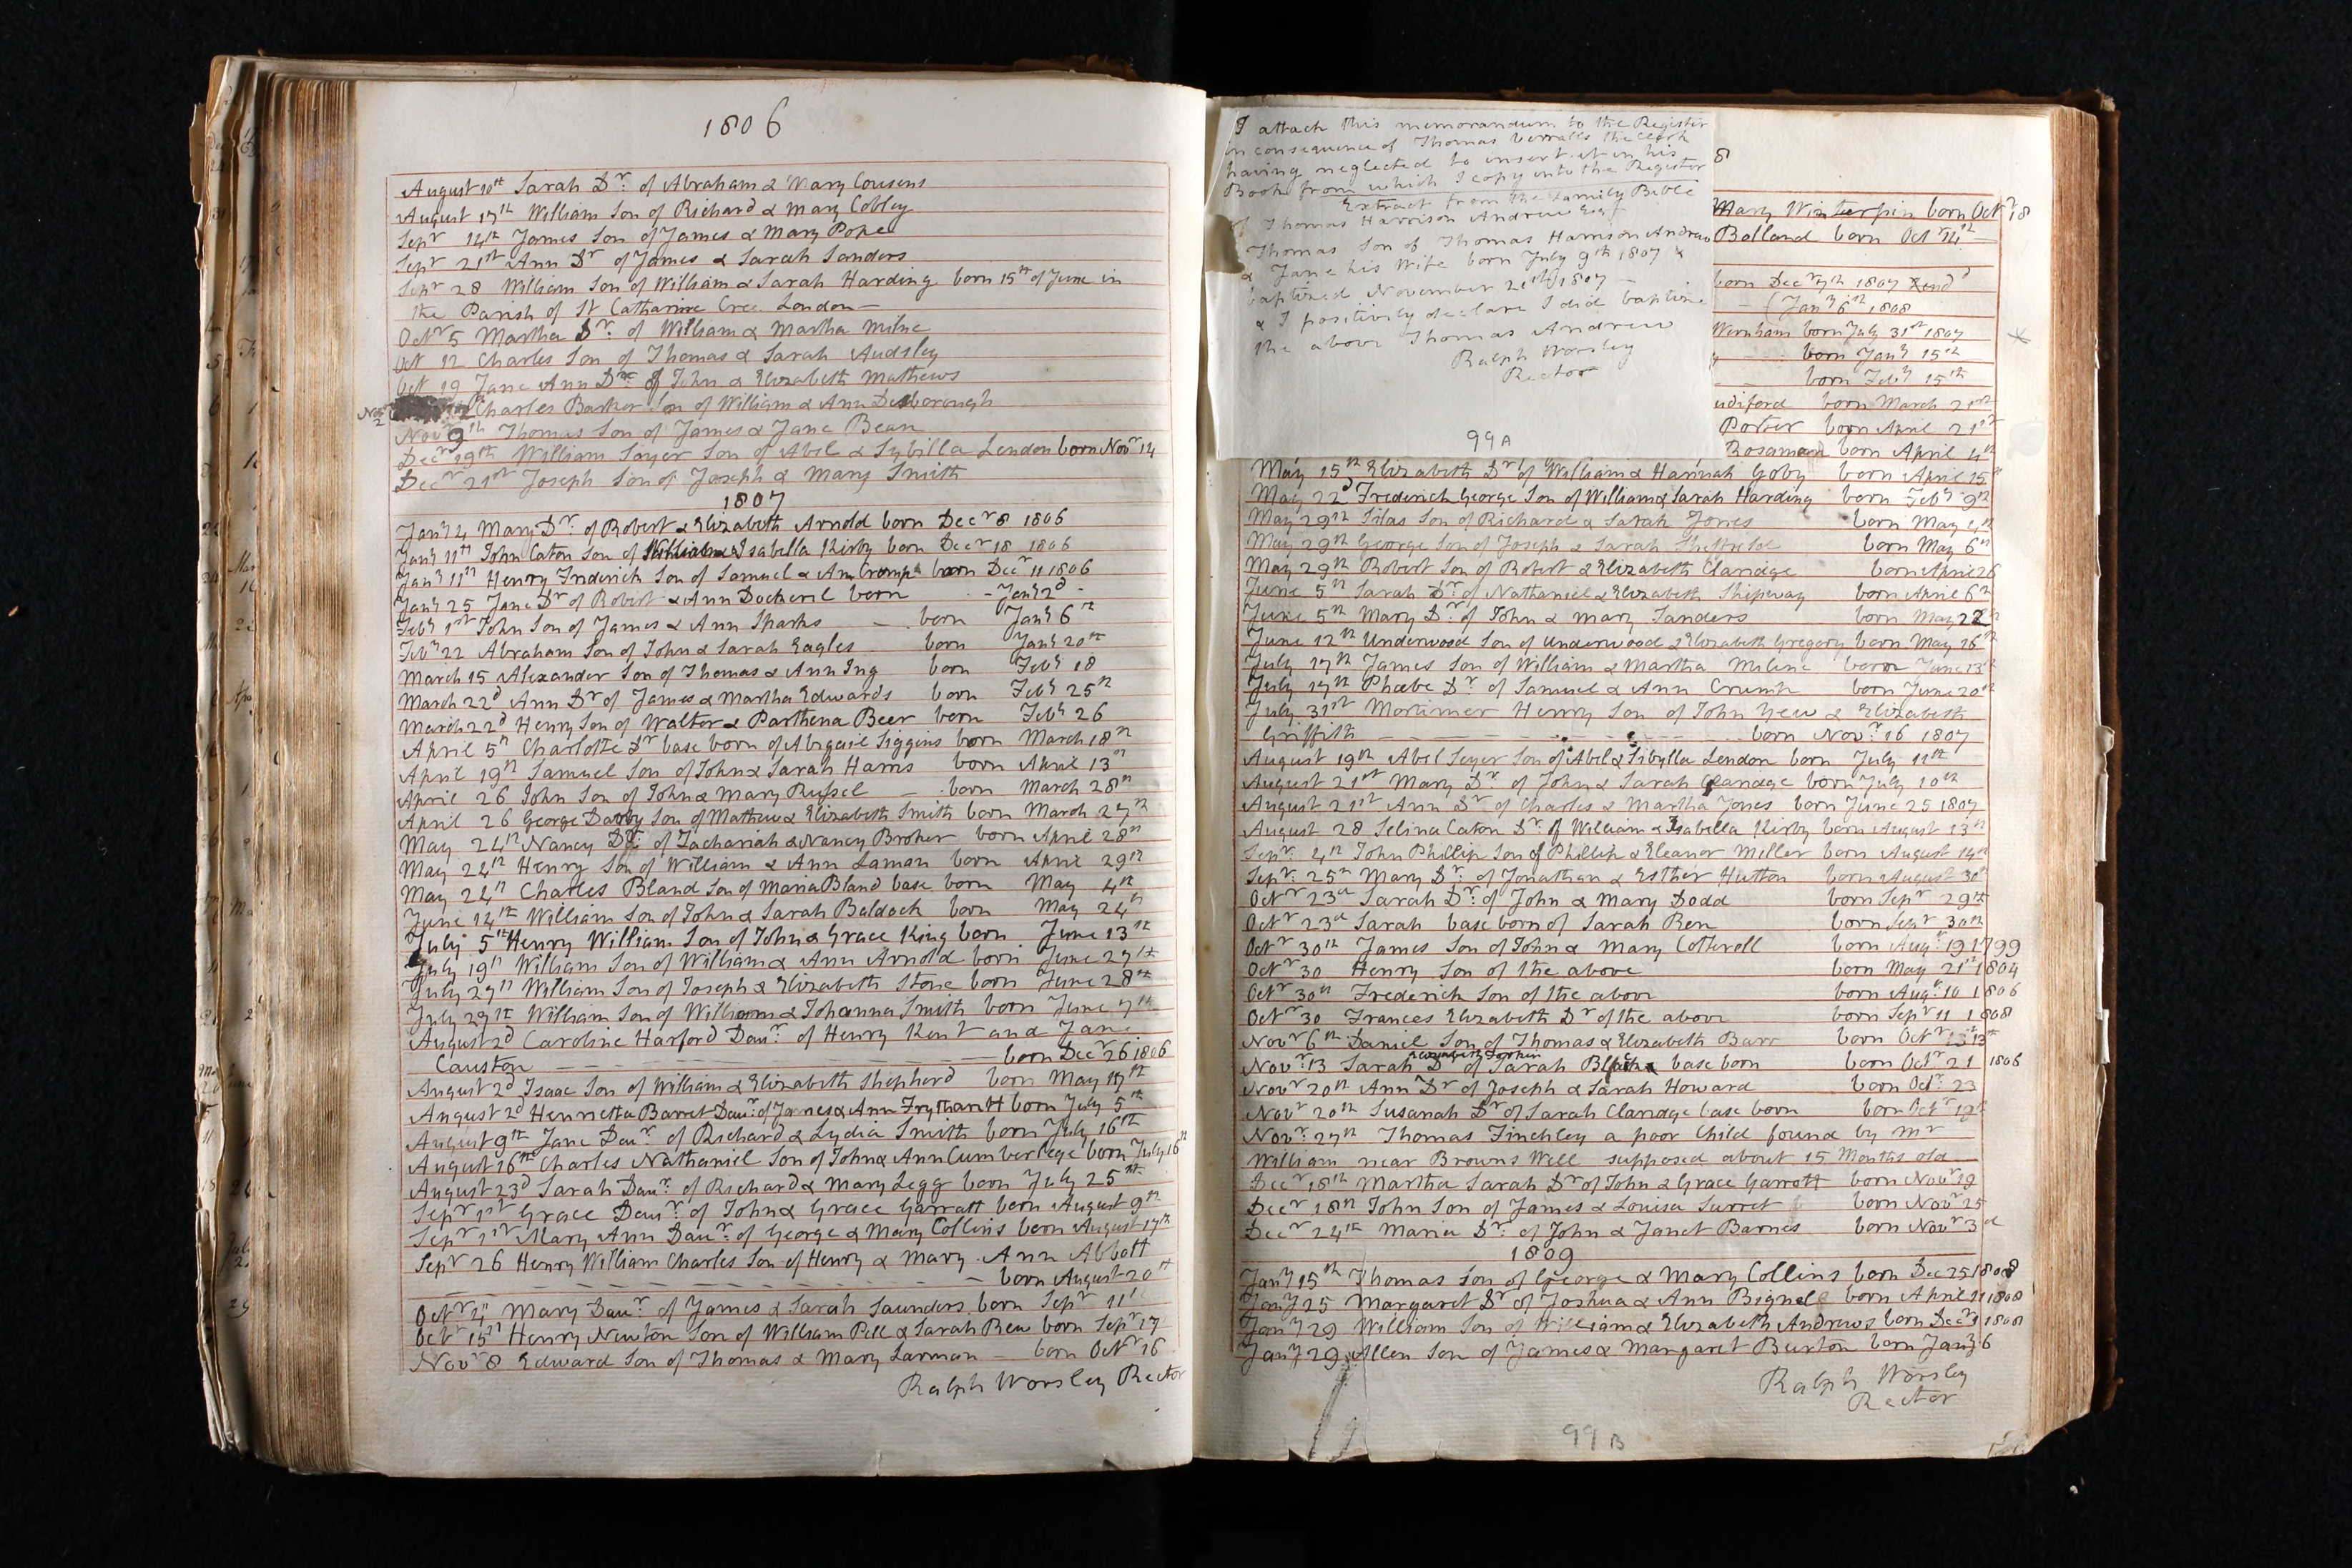 1806
August 10th Sarah Dr. of Abraham & Mary Cousens
August 17th William Son of Richard & Mary Cobley
Sepr 14th James Son of James & Mary Pope
Sepr 21st Ann Dr of James & Sarah Sanders
Sepr 28 William Son of William & Sarah Harding born 15th of June in
the Parish of St Catharine Cree London —
Octr 5 Martha Dr. of William & Martha Milne
Oct 12 Charles Son of Thomas & Sarah Audsley
Oct 19 Jane Ann Dr. of John & Elizabeth Mathews
Novr 2 Charles Barker Son of William & Ann Desborough
Novr 9th Thomas Son of James & Jane Bean
Decr 19th William Sayer Son of Abel & Sybilla London born Novr 14
Decr 21st Joseph Son of Joseph & Mary Smith
1807
Jany 4 Mary Dr. of Robert & Elizabeth Arnold born Decr 8 1806
Jany 11th John Caton Son of William & Isabella Kirby born Decr 18 1806
Jany 11th Henry Frederick Son of Samuel & Ann Crump born Decr 11 1806
Jany 25 Jane Dr of Robert & Ann Dockeril born - Jany 2d -
Feby 1st John Son of James & Ann Sparks — born Jany 6th
Feby 22 Abraham Son of John & Sarah Eagles born Jany 20th
March 15 Alexander Son of Thomas & Ann Ing born Feby 18
March 22d Ann Dr of James & Martha Edwards born Feby 25th
March 22d Henry Son of Walter & Parthena Beer born Feby 26
April 5th Charlotte Dr base born of Abigail Siggins born March 18th
April 19th Samuel Son of John & Sarah Harris born April 13th
April 26 John Son of John & Mary Russel — born March 28th
April 26 George Darby Son of Mathew & Elizabeth Smith born March 27th
May 24th Nancy Dr. of Zachariah & Nancy Broker born April 28th
May 24th Henry Son of William & Ann Laman born April 29th
May 24th Charles Bland Son of Maria Bland base born May 4th
June 14th William Son of John & Sarah Baldock born May 24th
July 5th Henry William Son of John & Grace King born June 13th
July 19th William Son of William & Ann Arnold born June 27th
July 27th William Son of Joseph & Elizabeth Stone born June 28th
July 29th William Son of William & Johanna Smith born June 7th
August 2d Caroline Harford Daur. of Henry Kent and Jane
Causton — — — born Decr 26 1806
August 2d Isaac Son of William & Elizabeth Shepherd born May 17th
August 2d Henrietta Barret Daur. of James & Ann born July 5th
August 9th Jane Daur. of Richard & Lydia Smith born July 16th
August 16th Charles Nathaniel Son of John & Ann Cumberlege born July 16th
August 23d Sarah Daur. of Richard & Mary Legg born July 25th
Sepr 1st Grace Daur. of John & Grace Garratt born August 9th
Sepr 1st Mary Ann Daur. of George & Mary Collins born August 17th
Sepr 26 Henry William Charles Son of Henry & Mary Ann Abbott
— — — born August 20th
Octr 4th Mary Daur. of James & Sarah Saunders born Sepr 11th
Octr 15th Henry Newton Son of William Pell & Sarah Rew born Sepr 17
Novr 8 Edward Son of Thomas & Mary Larman — born Octr 16
Ralph Worsley Rector
I attach this memorandum to the Register
in consequence of Thomas Verralls the Clerk
having neglected to insert it in his
Book from which I copy into the Register
Extract from the Family Bible
of Thomas Harrison Andrew Esqr
Thomas Son of Thomas Harrison Andrew
& Jane his Wife born July 9th 1807 &
baptized November 21st 1807 —
& I positively declare I did baptize
the above Thomas Andrew
Ralph Worsley
Rector
99A
8
Mary Winterpin born Octr 18
Bolland born Octr 14th
born Decr 7th 1807
(Jany 6th 1808
Wernham born July 31st 1807 X
born Jany 15th
born Feby 15th
udiford born March 21st
Potter born April 21st
Rosamond born April 4th
May 15th Elizabeth Dr. of William & Hannah Goby born April 15
May 22d Frederick George Son of William & Sarah Harding born Feby 9th
May 29th Silas Son of Richard & Sarah Jones born May 4th
May 29th George Son of Joseph & Sarah Sheffield born May 6th
May 29th Robert Son of Robert & Elizabeth Claridge born April 26
June 5th Sarah Dr. of Nathaniel & Elizabeth Shipway born April 6th
June 5th Mary Dr. of John & Mary Sanders born May 22
June 12th Underwood Son of Underwood & Elizabeth Gregory born May 16th
July 17th James Son of William & Martha Milne born June 13th
July 17th Phoebe Dr. of Samuel & Ann Crump born June 20th
July 31st Mortimer Henry Son of John Yew & Elizabeth
Griffith — — — born Novr. 16 1807
August 19th Abel Sayer Son of Abel & Sibylla London born July 11th
August 21st Mary Dr of John & Sarah Claridge born July 10th
August 21st Ann Dr of Charles & Martha Jones born June 25 1807
August 28 Selina Caton Dr. of William & Isabella Kirby born August 13th
Sepr. 4th John Phillip Son of Phillip & Eleanor Miller born August 14th
Sepr. 25th Mary Dr. of Jonathan & Esther Hutton born August 30
Octr 23d Sarah Dr. of John & Mary Dodd born Sepr 29th
Octr 23d Sarah base born of Sarah Ren born Sepr 30th
Octr 30th James Son of John & Mary Cotterell born Augt 19 1799
Octr 30 Henry Son of the above born May 21st 1804
Octr 30th Frederick Son of the above born Augt. 10 1806
Octr 30 Frances Elizabeth Dr of the above born Sepr 11 1808
Novr 6th Daniel Son of Thomas & Elizabeth Barr born Octr 13th
Novr. 13 Sarah Elizabeth Dr of Sarah base born born Octr 21 1806
Novr 20th Ann Dr of Joseph & Sarah Howard born Octr. 23
Novr 20th Susanah Dr of Sarah Claridge base born born Octr 12th
Novr. 27th Thomas Finchley a poor Child found by Mr
William near Browns Well supposed about 15 Months old
Decr 18th Martha Sarah Dr of John & Grace Garrott born Novr 19
Decr 18th John Son of James & Louisa Surret born Novr 25
Decr 24th Maria Dr. of John & Janet Barnes born Novr 3d
1809
Jany 15th Thomas Son of George & Mary Collins born Dec 25 1808
Jany 25 Margaret Dr of Joshua & Ann Bignell born April 11 1808
Jany 29 William Son of William & Elizabeth Andrews born Decr 1 1808
Jany 29 Allen Son of James & Margaret Burton born Jany 6
Ralph Worsley
Rector
99B